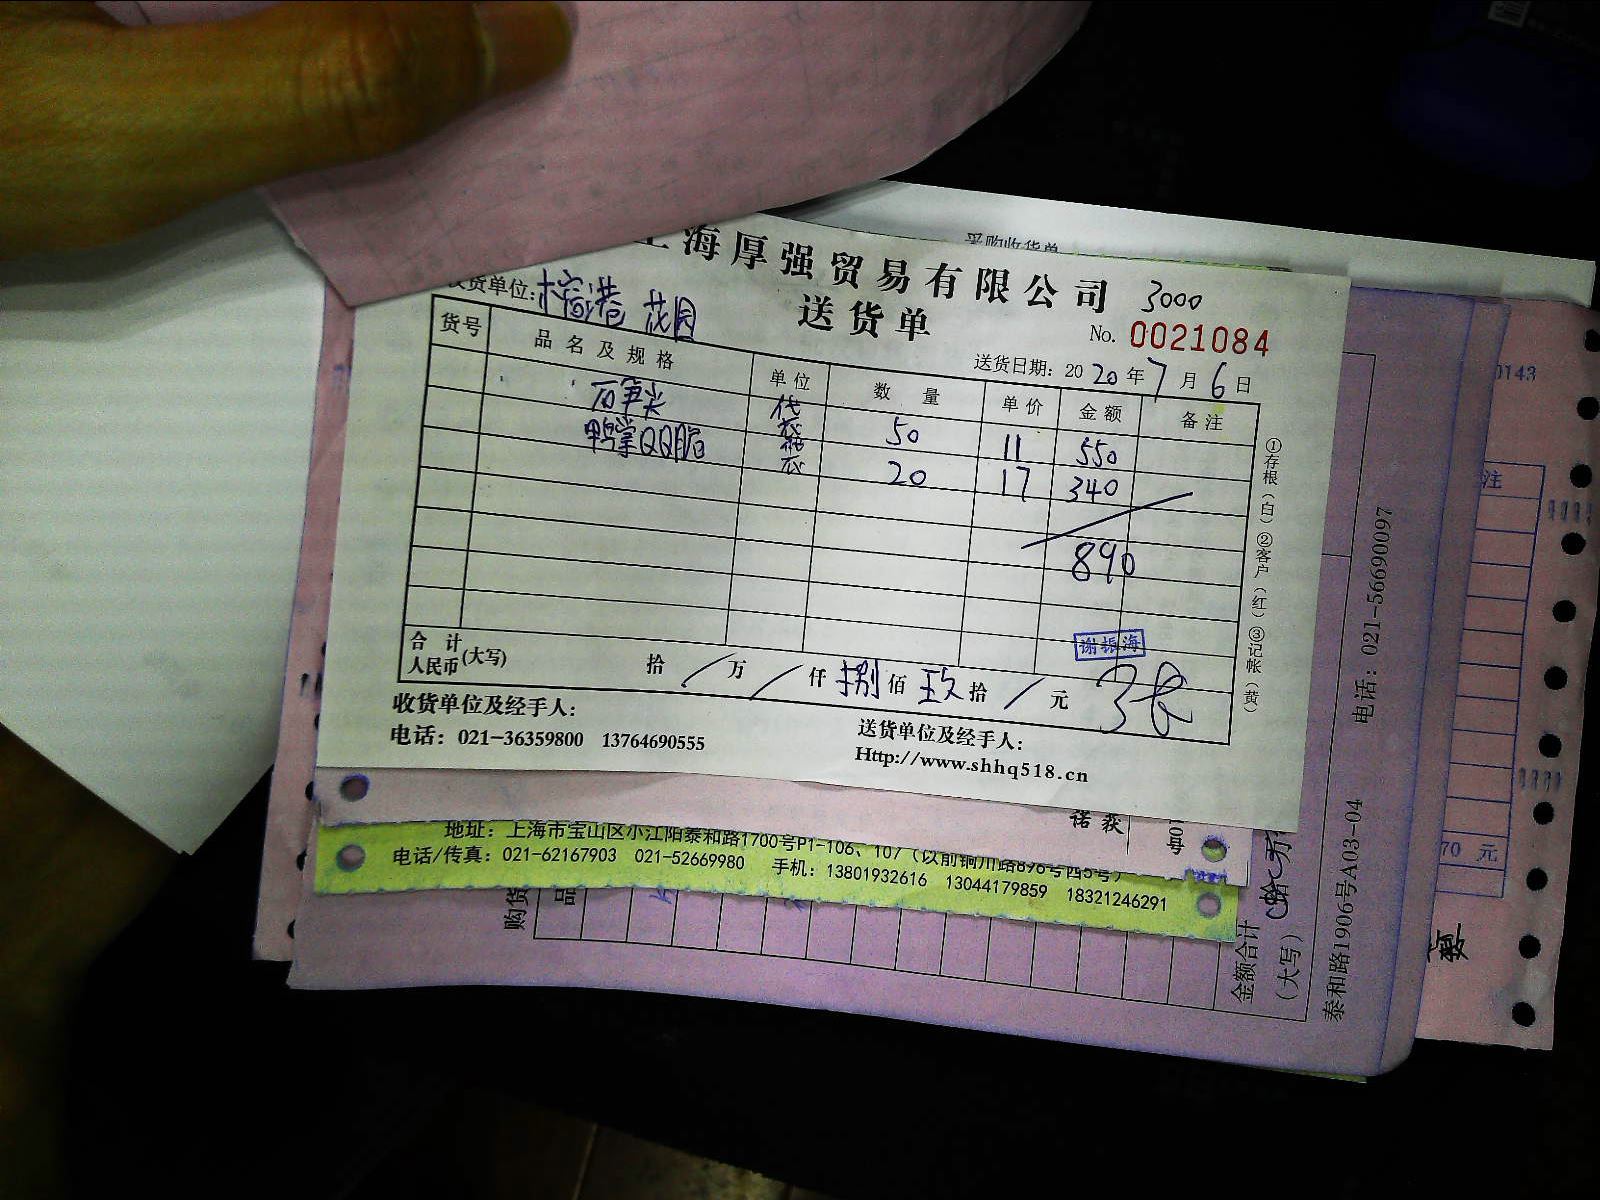 采购收货单
上海厚强贸易有限公司 3000
送货单 No. 0021084
收货单位: 花园
送货日期: 2020年7月6日
货号 品名及规格 单位 数量 单价 金额 备注
石笋尖 50 11 550
鸭掌QQ脂 20 17 340
890
谢振海
合计人民币(大写) 拾 / 万 / 仟 捌 佰 玖 拾 / 元
收货单位及经手人:
送货单位及经手人:
电话: 021-36359800 13764690555
Http://www.shhq518.cn
①存根(白)②客户(红)③记帐(黄)
诺 获
地址: 上海市宝山区小江阳泰和路1700号P1-106、107(以前铜川路896号西5号)
电话/传真: 021-62167903 021-52669980 手机: 13801932616 13044179859 18321246291
购货
品
金额合计
(大写)
泰和路1906号A03-04
电话: 021-56690097
0143
注
70 元